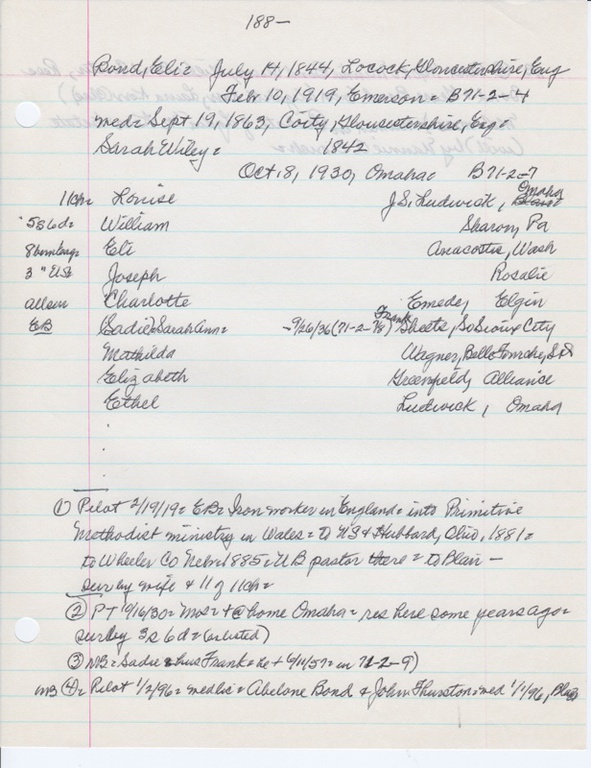 188-
Bond, Eli= July 14, 1844, Locock, Gloucestershire, Eng
Feb 10, 1919, Emerson= B71-2-4
med= Sept 19, 1863, Coity, Gloucestershire, Eng=
Sarah Wiley= 1842
Oct 8, 1930, Omaha= B71-2-7
11ch= Louise J.S. Ludwick, Omaha
5s6d= William Sharon, Pa
8born Eng= Eli Anacostia, Wash
3 " US= Joseph Rosalie
all sur Charlotte Emede, Elgin
EB (Sadie)=Sarah Ann= -9/26/36 (71-2-7/8) Frank Sheets, So Sioux City
Mathilda Wagner, Belle Fourche, S D
Elizabeth Greenfield, Alliance
Ethel Ludwick, Omaha
① Pilot 2/19/19= EB= Iron worker in England= into Primitive
Methodist ministry in Wales= to US & Hubbard, Ohio, 1881=
to Wheeler Co Nebr 1885= U B pastor there= to Blair-
sur by wife & 11 of 11ch=
② PT 10/16/30= Mos= + @ home Omaha= res here some years ago=
sur by 3s 6d= (as listed)
③ NB= Sadie & hus Frank= he + 6/11/57= in 71-2-9)
NB ④= Pilot 1/2/96= med lic= Abelone Bond & John Thurston= med 1/1/96, Blair